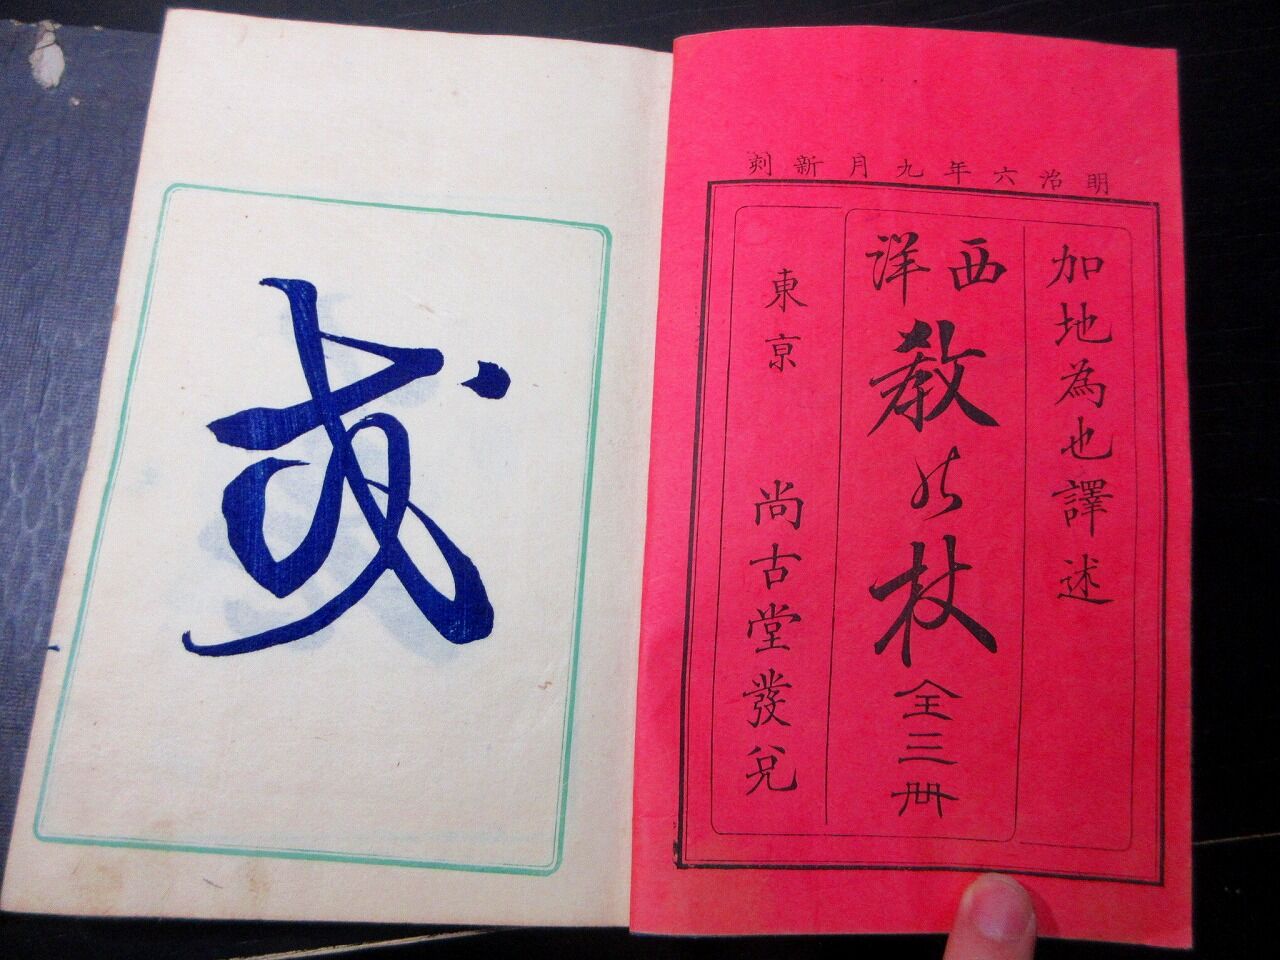 明治六年九月新刻
加地為也譯述
西洋
教の杖
全三冊
東亰 尚古堂發兌